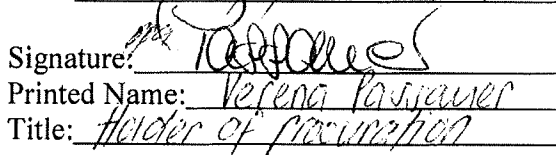 Signature: ppa Passauer
Printed Name: Verena Passauer
Title: Holder of procuration